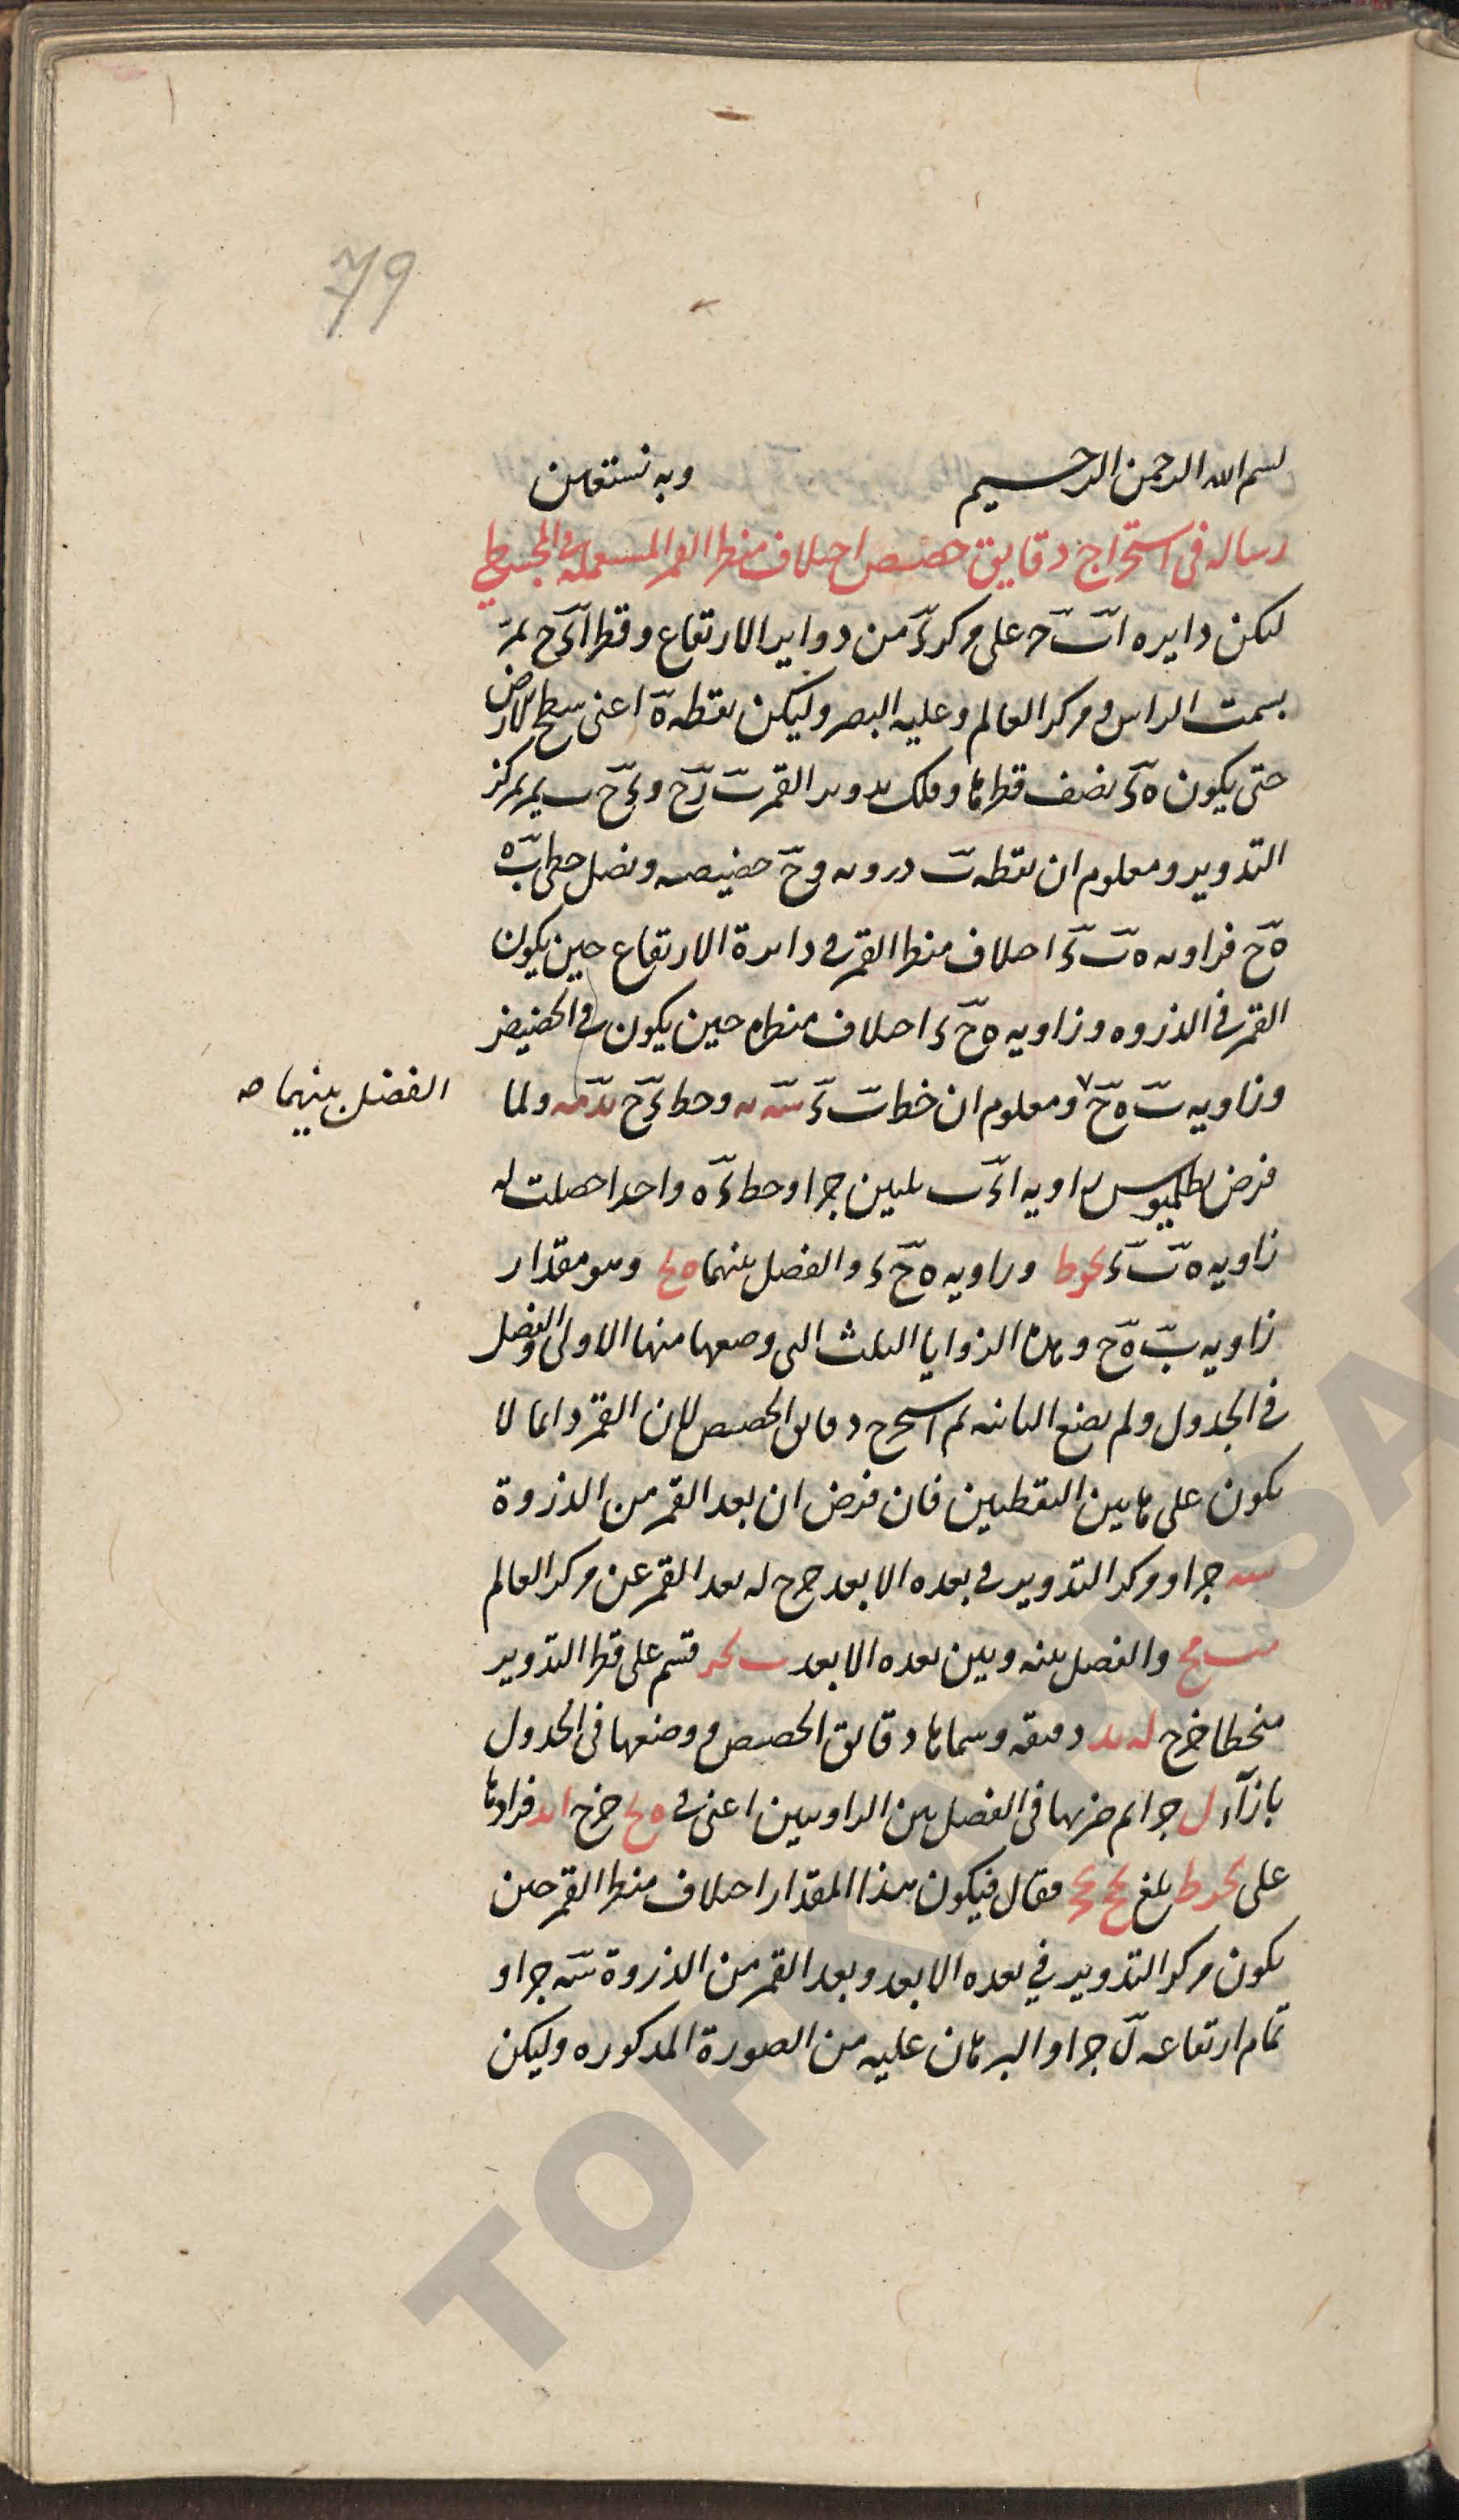 79
بسم الله الرحمن الرحيم وبه نستعين
رساله فى استخراج دقايق حصص اختلاف منظر القمر المستعمله فى المجسطى
لتكن دايره ا ب ح على مركز ء من دواير الارتفاع وقطر ا ء ح يمر
بسمت الراس ومركز العالم وعليه البصر وليكن نقطه ه اعنى سطح الارض
حتى يكون ه ء نصف قطرها وفلك تدوير القمر ب ز ح و ء ح ب يمر بمركز
التدوير ومعلوم ان نقطه ب ذروته و ح حضيضه ونصل خطى ب ه
ه ح فزاويه ه ب ء اختلاف منظر القمر فى دايرة الارتفاع حين يكون
القمر فى الذروه وزاويه ه ح ء اختلاف منظره حين يكون فى الحضيض
وزاويه ب ه ح ومعلوم ان خط ب ء وخط ء ح ولما
الفضل بينهما صه
فرض بطلميوس زاويه ا ء ب ثلثين جزا وخط ء ه واحدا حصلت له
زاويه ه ب ء وزاويه ه ح ء والفضل بينهما وهو مقدار
زاويه ب ه ح وهذه الزوايا الثلث التى وضعها منها الاولى والفضل
فى الجدول ولم يضع الثانيه ثم استخرج دقايق الحصص لان القمر دائما لا
يكون على هاتين النقطتين فان فرض ان بعد القمر من الذروة
سه جزا ومركز التدوير فى بعده الابعد خرج له بعد القمر عن مركز العالم
والفضل بينه وبين بعده الابعد قسم على قطر التدوير
منحطا خرج له دقيقه وسماها دقايق الحصص ووضعها فى الجدول
بازآء ل جزا ثم ضربها فى الفضل بين الزاويتين اعنى فى خرج فزادها
على بلغ فقال فيكون هذا المقدار اختلاف منظر القمر حين
يكون مركز التدوير فى بعده الابعد وبعد القمر من الذروة سه جزا و
تمام ارتفاعه ل جزا والبرهان عليه من الصورة المذكوره وليكن